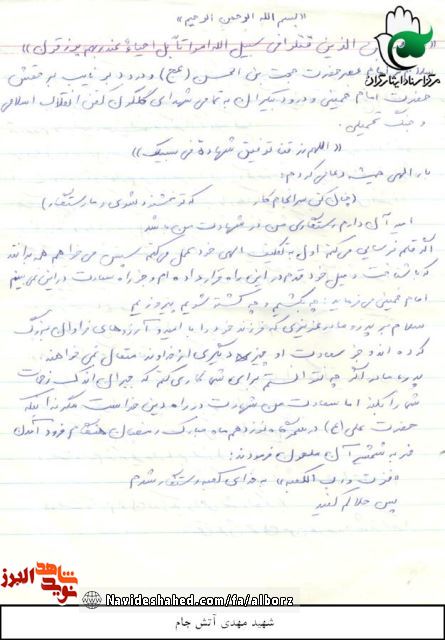 «بسم الله الرحمن الرحیم»
الذین قتلوا فی سبیل الله امواتاً بل احیاءٌ عند ربهم یرزقون»
حضرت حجت بن الحسن (عج) و درود بر نایب به حقش
حضرت امام خمینی و درود بیکران به تمامی شهدای گلگون کفن انقلاب اسلامی
و جنگ تحمیلی.
«اللهم ارزقنا توفیق شهادة فی سبیلک»
بار الهی همیشه دعا می کردم:
(چنان کن سرانجام کار که تو خشنود شوی و ما رستگار)
امید آن دارم رستگاری من در شهادت من باشد
اگر قلم فرسایی می کنم اول به تکلیف الهی خود عمل می کنم سپس می خواهم همه بدانند
که با شناخت و میل خود قدم در این راه قرار داده ام و جز راه سعادت در این نمی بینم
امام خمینی می فرماید: چه بکشیم و چه کشته شویم پیروزیم
سلام بر پدر و مادر عزیزی که فرزند خود را با امید و آرزوهای فراوان بزرگ
کرده اند و جز سعادت او چیزی دیگری از خداوند متعال نمی خواهند.
پدر و مادر اگر چه نتوانستم برای شما کاری کنم که جبران اندک زحمات
شما را بکند اما سعادت من شهادت در راه دین خداست مگر نه اینکه
حضرت علی (ع) در سحرگاه نوزدهم ماه مبارک رمضان هنگام فرود آمدن
ضربه شمشیر آن ملعون فرمودند:
«فزت و رب الکعبه» به خدای کعبه رستگار شدم
پس حلالم کنید
مرکز اسناد ایثارگران
نوید شاهد البرز
Navideshahed.com/fa/alborz
شهید مهدی آتش جام